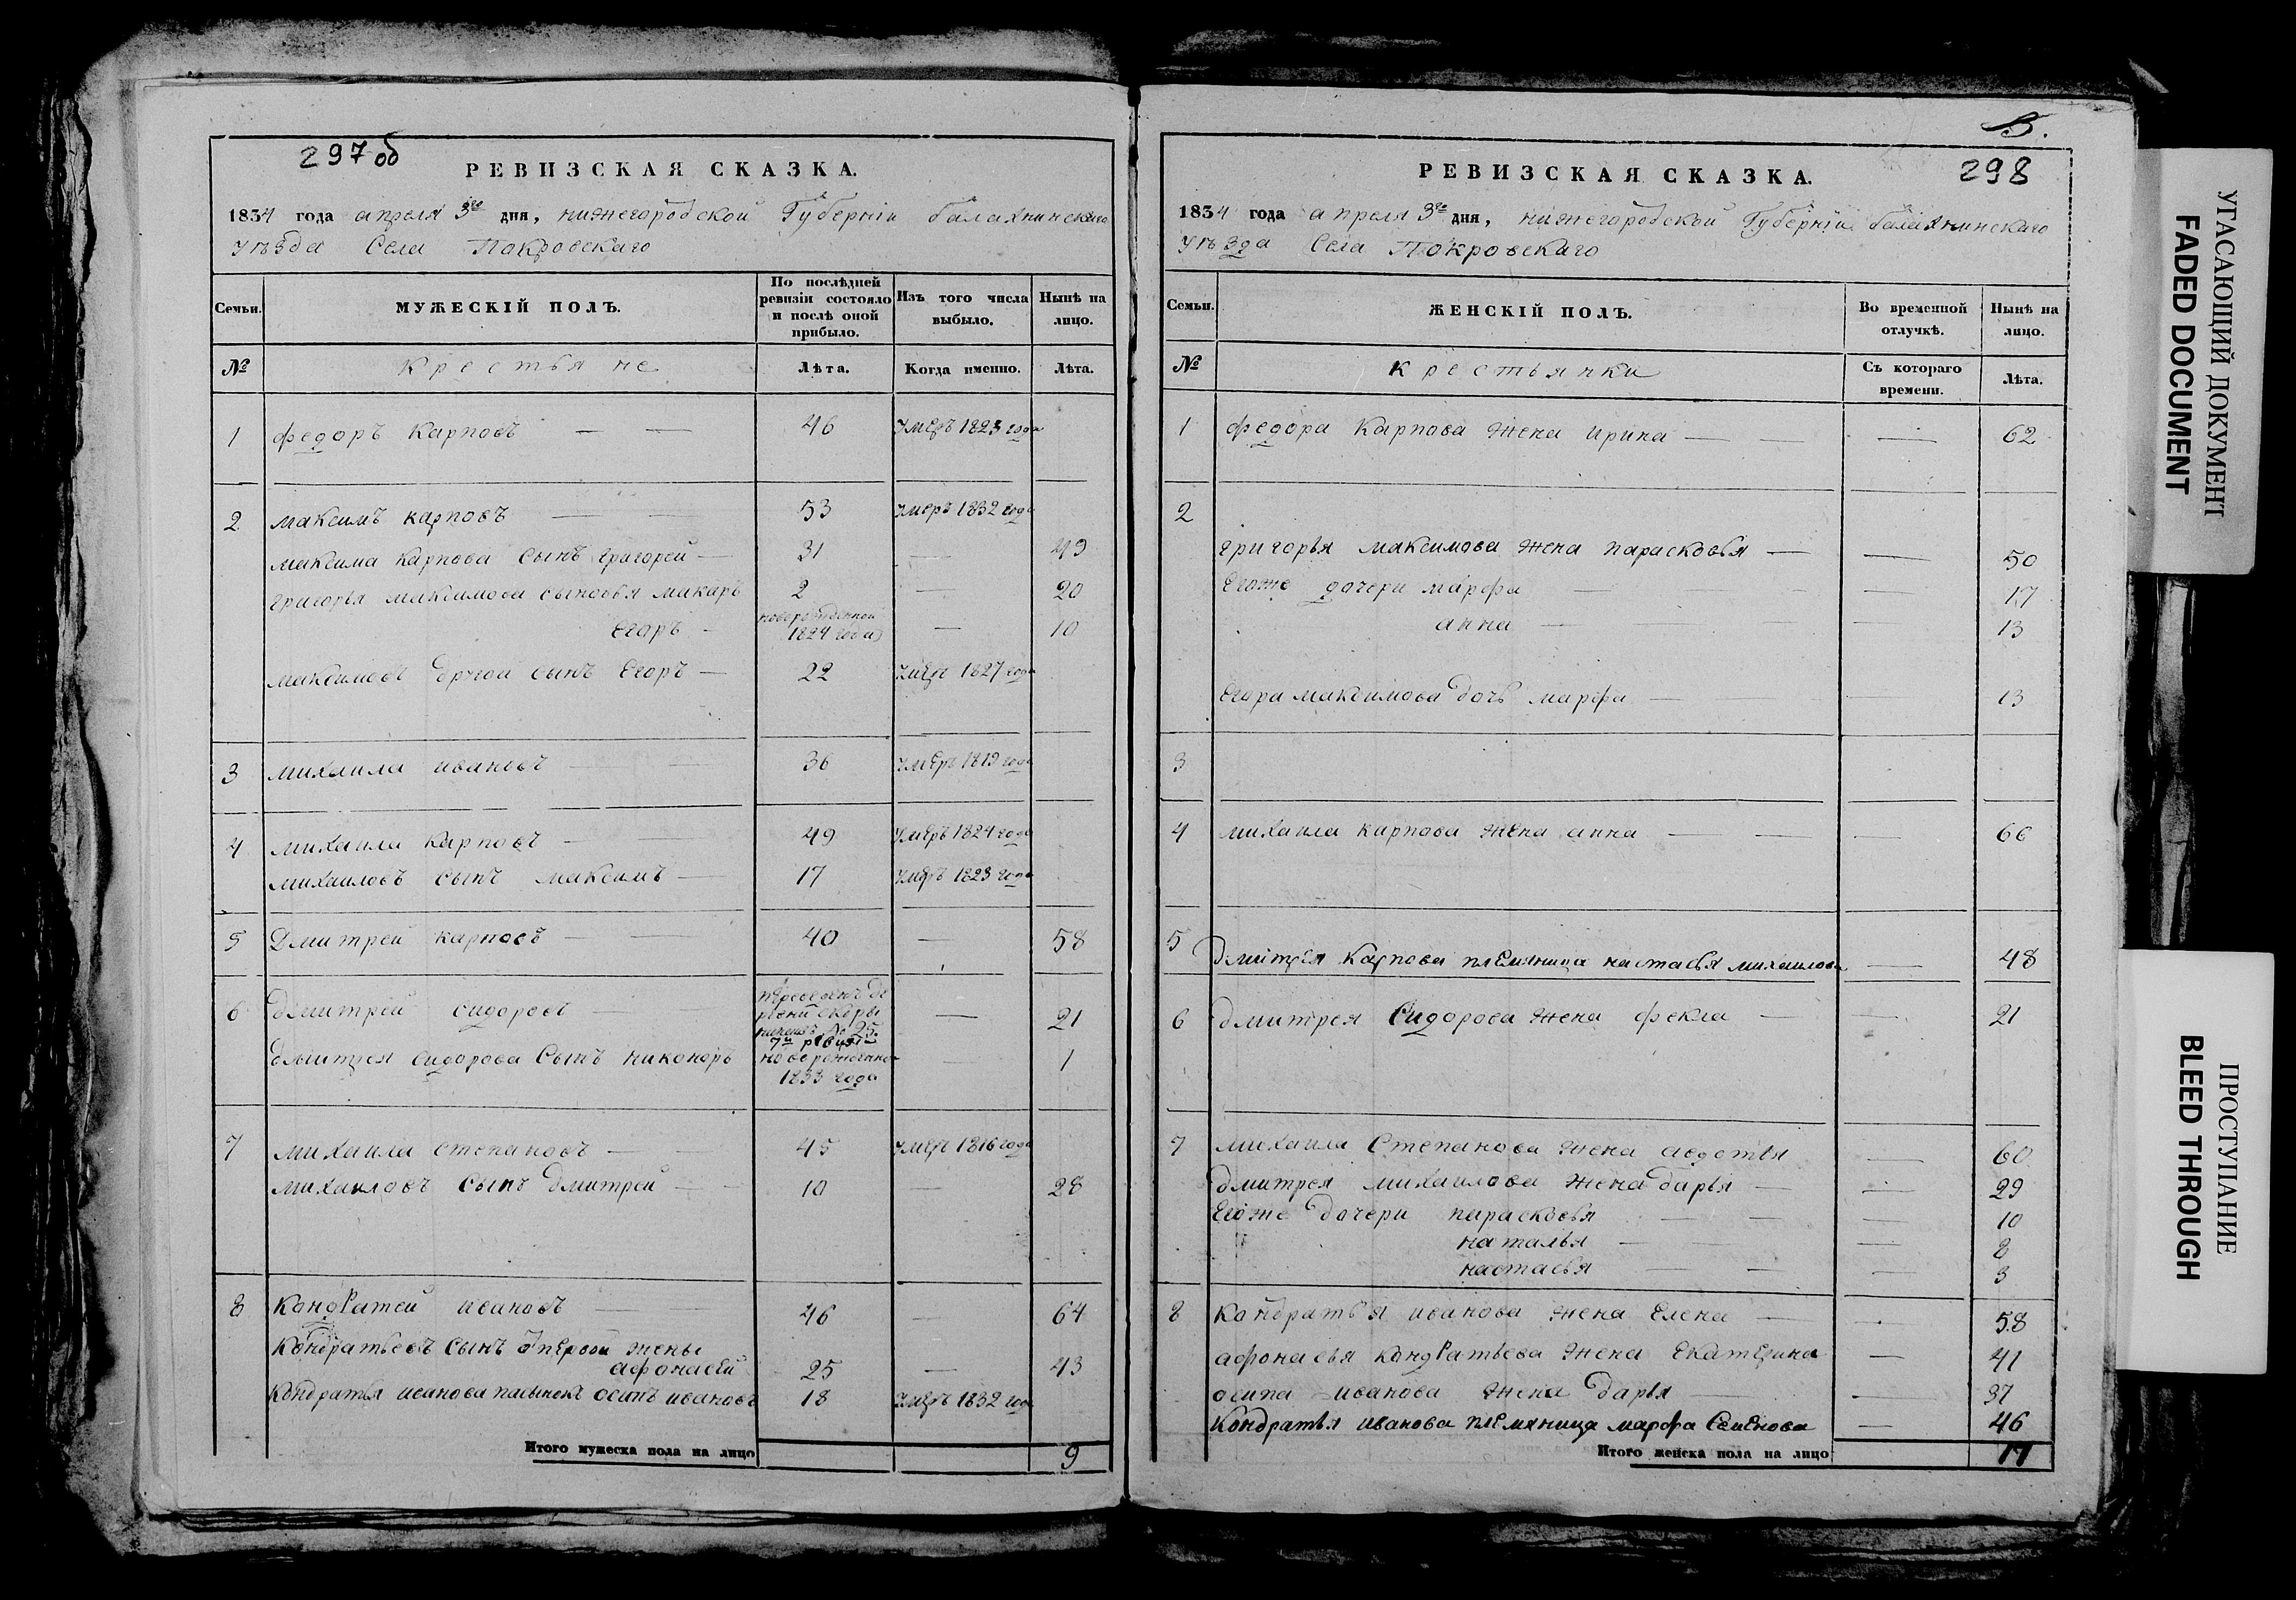 297 об
РЕВИЗСКАЯ СКАЗКА.
1834 года апреля 3го дня, нижегородской Губерніи балахнинскаго
уѣзда Села Покровскаго
Семьи.
МУЖЕСКІЙ ПОЛЪ.
По послѣдней
ревизіи состояло
и послѣ оной
прибыло.
Изъ того числа
выбыло.
Нынѣ на
лицо.
№
Крестьяне
Лѣта.
Когда именно.
Лѣта.
1 федоръ карповъ — — 46 умеръ 1823 года
2 максимъ карповъ — — 53 умеръ 1832 года
максима карпова сынъ григорей — 31 — 49
григорья максимова сыновья макаръ 2 — 20
новорожденной
егоръ - 1824 года — 10
максимовъ другой сынъ егоръ — 22 умеръ 1827 года
3 михаила ивановъ — — 36 умеръ 1819 года
4 михаила карповъ — — 49 умеръ 1824 года
михаиловъ сынъ максимъ — 17 умеръ 1823 года
5 Дмитрей карповъ — — 40 — 58
6 дмитрей сидоровъ — — — 21
7й ревизіи
дмитрея сидорова сынъ никоноръ новорожденной — 1
1833 года
7 михаила степановъ — — 45 умеръ 1816 года
михаиловъ сынъ дмитрей — — 10 — 28
8 кондратей ивановъ — 46 — 64
кондратьевъ сынъ отпервой жены
афонасей 25 — 43
кондратья иванова пасынокъ осипъ ивановъ 18 умеръ 1832 года
Итого мужеска пола на лицо 9
В.
298
РЕВИЗСКАЯ СКАЗКА.
1834 года апреля 3го дня, нижегородской Губерніи балахнинскаго
уѣзда Села Покровскаго
Семьи.
ЖЕНСКІЙ ПОЛЪ.
Во временной
отлучкѣ.
Нынѣ на
лицо.
№
крестьянки
Съ котораго
времени.
Лѣта.
1 федора карпова жена ирина — — — 62
2
григорья максимова жена парасковья — — 50
егоже дочери марфа — — 17
анна — — — 13
егора максимова дочь марфа — — 13
3
4 михаила карпова жена анна — — — 66
5 дмитрея карпова племяница настасья михаилова — 48
6 дмитрея Сидорова жена фекла — — 21
7 михаила Степанова жена авдотья — 60
дмитрея михаилова жена дарья — — 29
егоже дочери парасковья — — — 10
наталья — — — 8
настасья — — — 3
8 кондратья иванова жена елена — — 58
афонасья кондратьева жена екатерина — 41
осипа иванова жена дарья — — 37
кондратья иванова племяница марфа Семенова — 46
Итого женска пола на лицо 17
УГАСАЮЩИЙ ДОКУМЕНТ
FADED DOCUMENT
ПРОСТУПАНИЕ
BLEED THROUGH